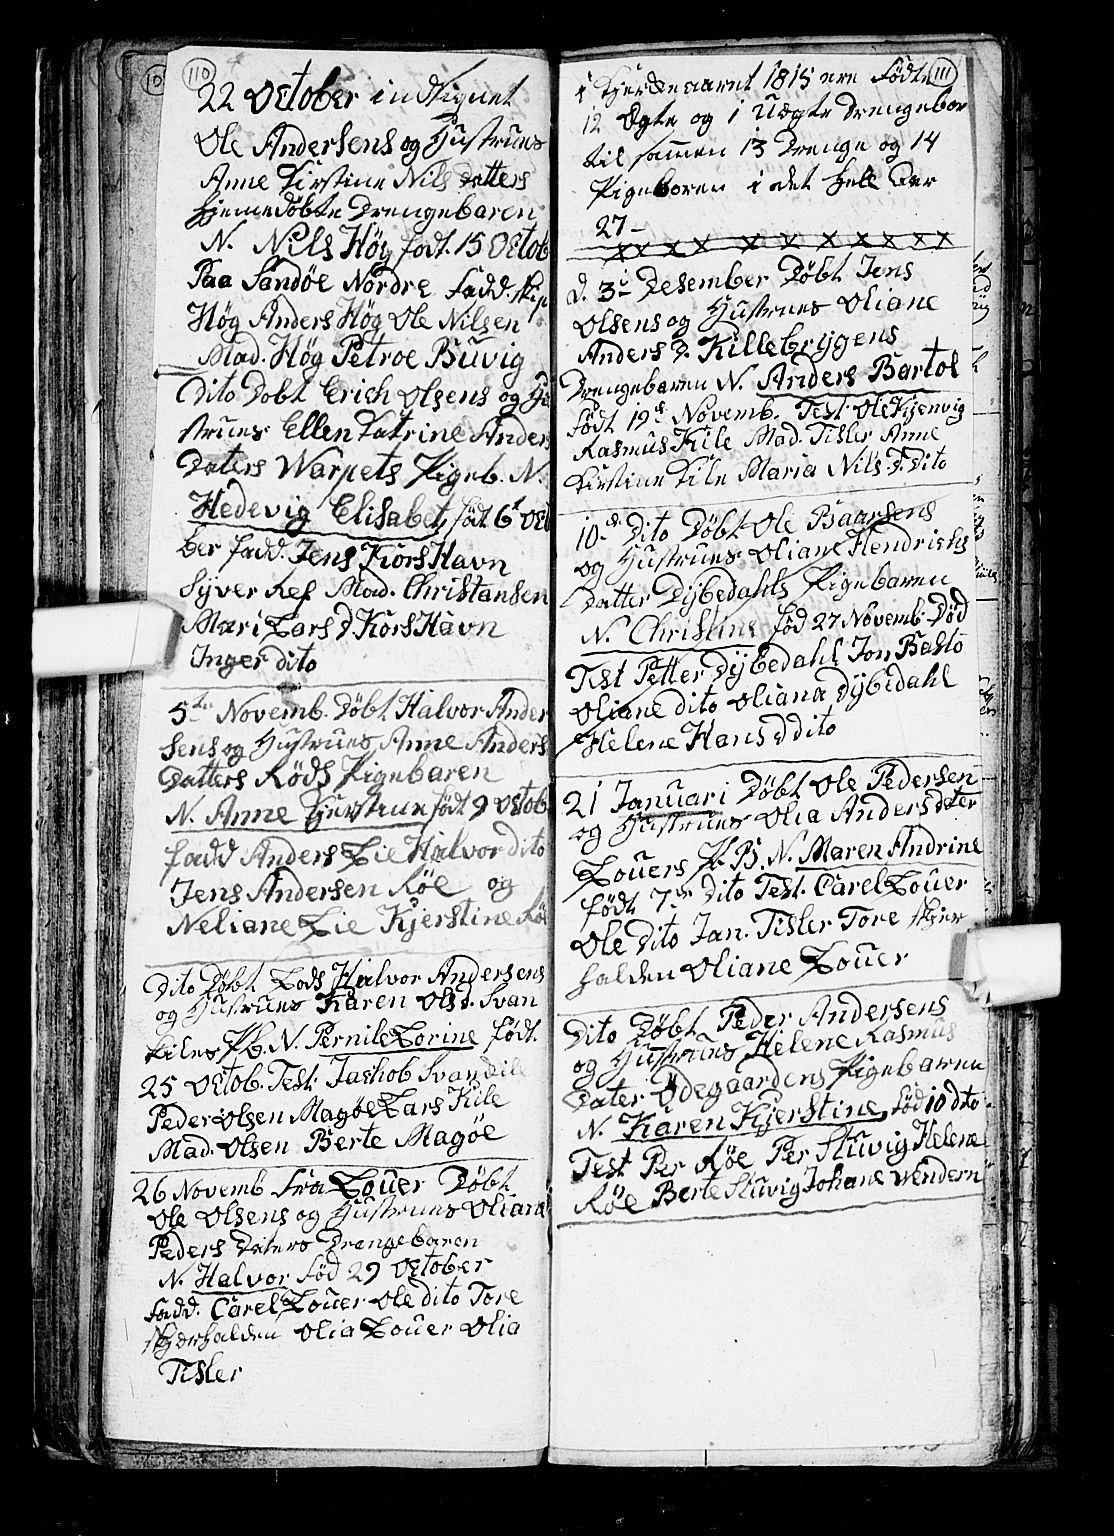 110
22 October indSignet
Ole Andersens og Hustrues
Anne Kirstine Nils datters
hjemedøbte Drengebaren
N. Nils Høg født 15 Octob
Paa Sandøe Nordre fadd. Skip
Høg Anders Høg Ole Nilsen
Mad. Høg Petroe Buvig
Dito Døbt Erich Olsens og Hu
strues Ellen Catrine Anders
Daters Warpets Pigeb. N.
Hedevig Elisabet født 6t Octo
ber fadd. Jens KorsHavn
Syver Ref Mad. Christansen
Mari Lars D. KorsHavn
Inger dito
5te Novemb. Døbt Halvor Ander
sens og Hustrues Anne Anders
Datters Røds Pigebaren
N. Anne Kjerstine født 9 Octob
fadd Anders Lie Halvor dito
Jens Andersen Røe og
Neliane Lie Kjerstine Røe
Dito Døbt Lods Halvor Andersens
og Hustrues Karen Ols. Svan
kiles P.b. N. Pernile Lorine født
25 Octob. Test. Jashob Svandile
Peder Olsen Magøe Lars Kile
Mad. Olsen Berte Magøe
26 Novemb fra Louer Døbt
Ole Olsens og Hustrues Oliana
Peders Daters Drengebaren
N. Halvor fød 29 October
fadd. Carel Louer Ole dito Tore
Skjørhalden Olia Louer Olia
Tisler
111
i Kjerkeaaret 1815 ere Fødte
12 Ægte og 1 Uægte Drengebor
til sammen 13 Drenge og 14
Pigeboren i det hele Der
27-
d. 3e Desember Døbt Jens
Olsens og Hustrues Oliane
Anders D. Killebrygens
Drengebaren N. Anders Bartol
født 19de Novemb. Test Ole Kjenvig
Rasmus Kile Mad. Tisler Anne
Kirstine Kile Maria Nils D. Dito
10de Dito Døbt Ole Baarsens
og Hustrues Oliane Hendrichs
Datter Dybedahls Pigebaren
N. Christine fød 27 Novemb. Død
Test Petter Dybedahl Jon Basto
Oliane dito Oliana Dybedahl
Helene Hans D dito
21 Januari Døbt Ole Pedersen
og Hustrues Olia Anders dater
Louers P. B. N. Maren Andrine
født 7de Dito Test. Carel Louer
Ole Dito Jan. Tisler Tore Skjær
halden Oliane Louer
Dito Døbt Peder Andersens
og Hustrues Helene Rasmus
Dater Ødegaardens Pigebaren
N. Karen Kjerstine fød 10 dto
Test Per Røe Per Stuvig Helene
Røe Berte Stuvig Johane Wendern